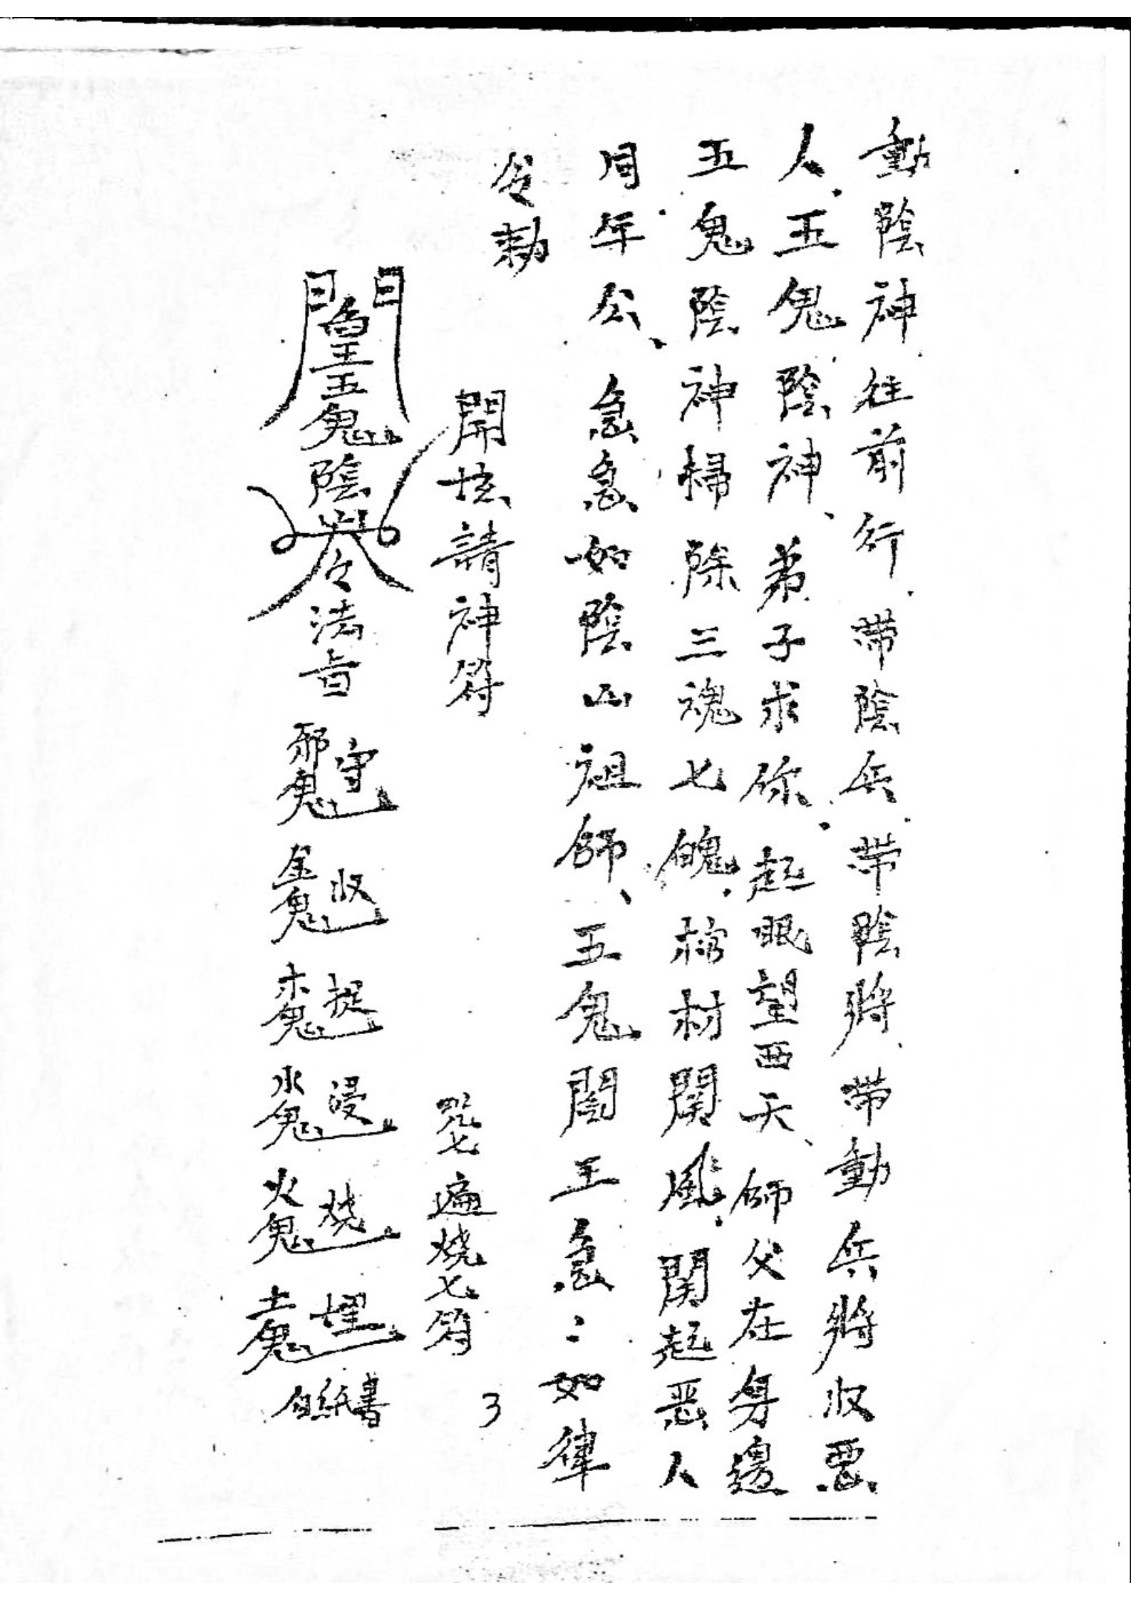 動陰神往前行、帶陰兵、帶陰將、帶動兵將收惡
人、五鬼陰神、弟子求你、起眼望西天、師父在身邊
五鬼陰神掃除三魂七魄、棺材開風、開起惡人
同年公、急急如陰山祖師、五鬼閻王急:如律
令勅
開壇請神符
咒七遍燒七符
3
閻王五鬼陰兵令法旨
邪鬼守
金鬼收
木鬼捉
水鬼浸
火鬼燒
土鬼埋
白紙書